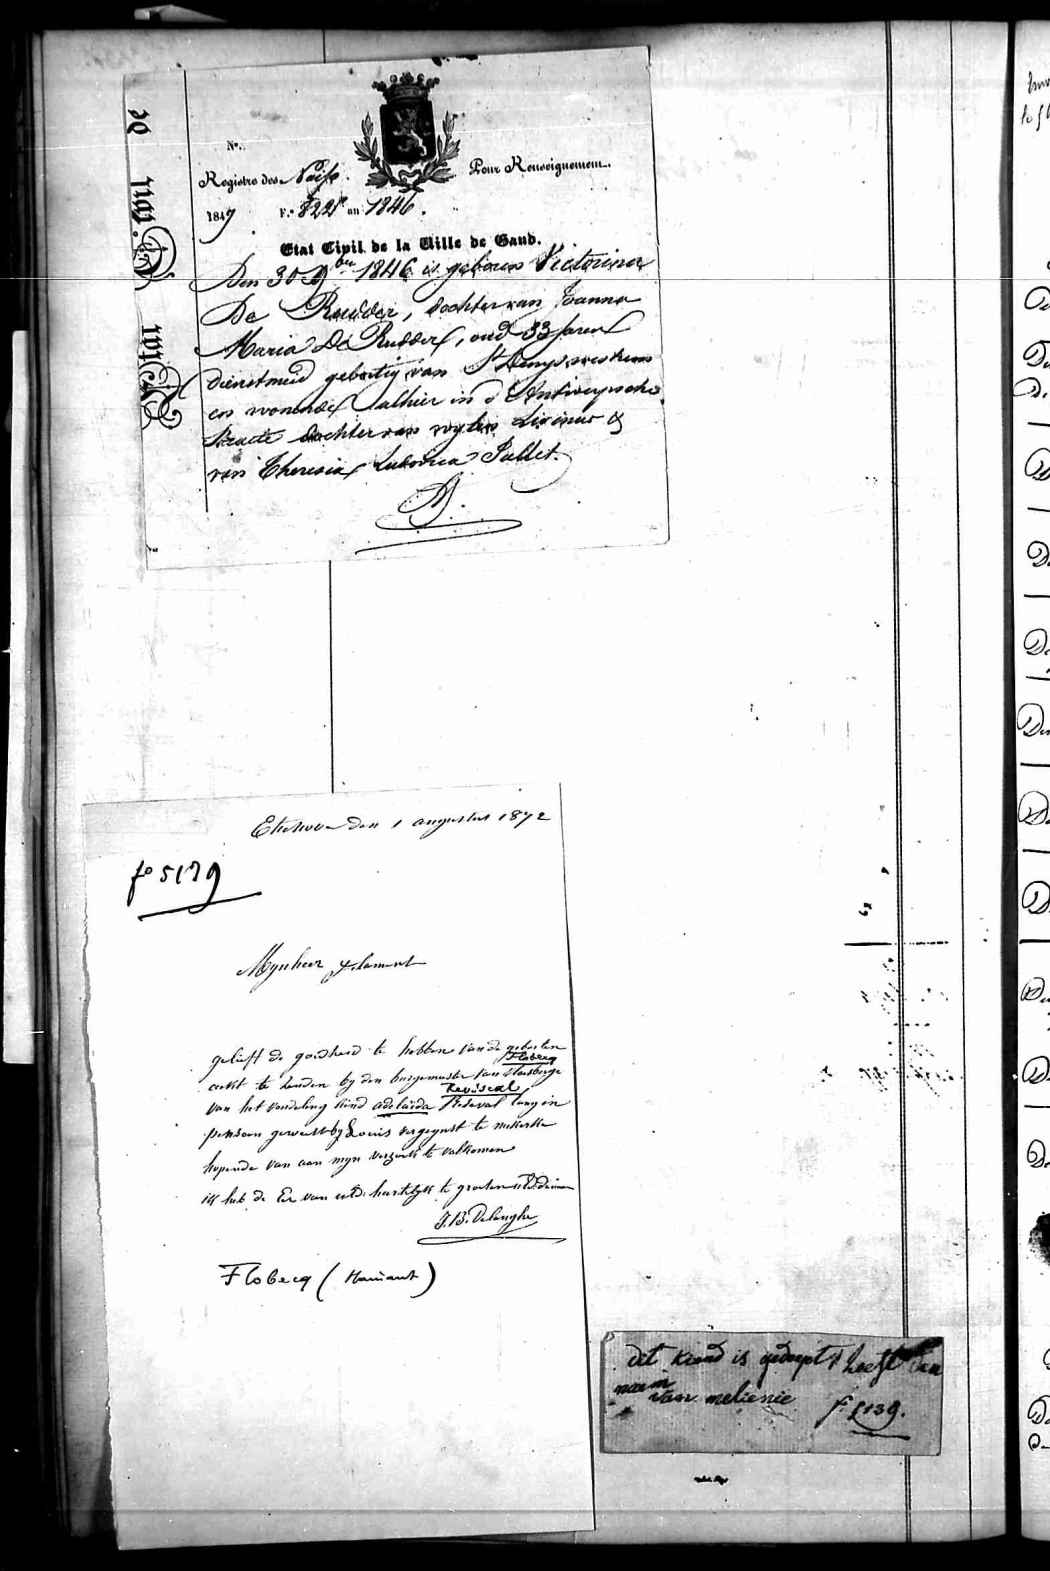 Nº.
Registre des Naiss. Pour Renseignement.
1847 Fº 822 an 1846.
Etat Civil de la Ville de Gand.
Den 30 9ber 1846 is geboren Victorina
De Rudder, dochter van Joanna
Maria De Rudder, oud 33 jaren
dienstmeid geboortig van St Denys
en wonende alhier in d'Antwerpsche
straete dochter van wylen Livinus &
van Theresia Ludovica Pallet.
Etichove den 1 augustus 1872
fº 5139
Mynheer Flament
gelieft de goedheid te hebben van de geboorten
Flobecq
ackt te zenden by den burgemeester van
van het vondeling kind adelaïda lang in
pensoen geweest by Louis te
hopende van aan myn verzoek te volkomen
ik heb de Eer van hertelyk te groeten
J. B. Delanghe
Flobecq (Hainaut)
dit kiend is gedoept & heeft den
naem
van melienie
f. 5139.